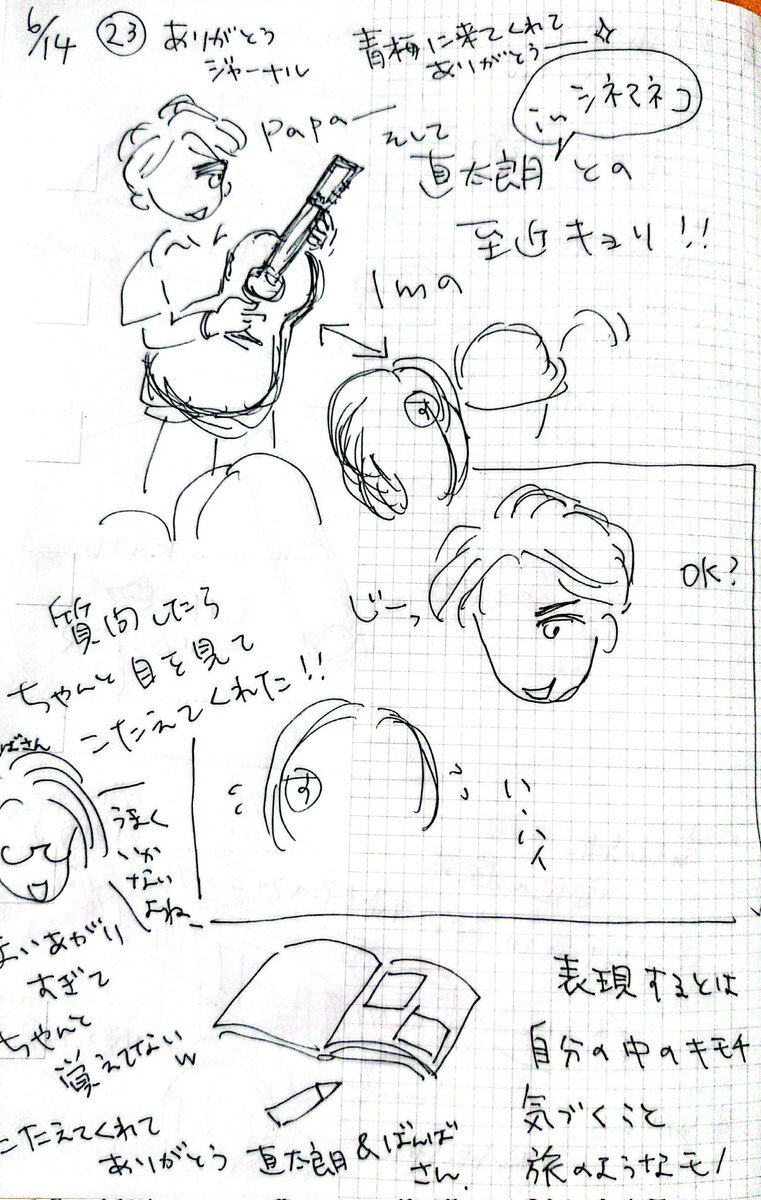 6/14 ㉓ ありがとう
ジャーナル
青梅に来てくれて
ありがとう―
in シネマネコ
papa―
そして
直太朗 との
至近キョリ!!
1mの
す
OK?
じーっ
質問したら
ちゃんと目を見て
こたえてくれた!!
ばさん
す
は、はい
うまく
いか
ない
よね
まいあがり
すぎて
ちゃんと
覚えてないw
こたえてくれて
ありがとう 直太朗&ばんば
さん.
表現するとは
自分の中のキモチ
気づくこと
旅のようなモノ